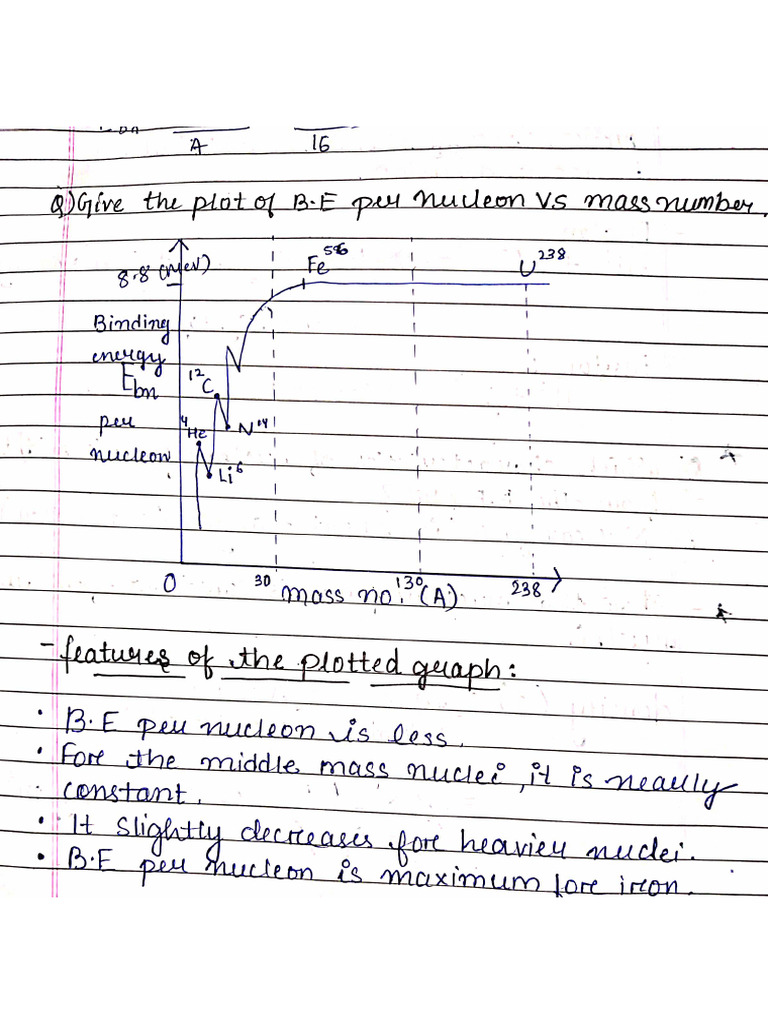 A 16
Q) Give the plot of B.E per nucleon vs mass number.
8.8 (mev)
Fe 56
U 238
Binding
energy
Ebn
12 C
per
4 He
N 14
nucleon
Li 6
0 30 130 238
mass no. (A)
- features of the plotted graph:
• B.E per nucleon is less.
• Fore the middle mass nuclei, it is nearly
constant.
• It slightly decreases fore heavier nuclei.
• B.E per nucleon is maximum fore iron.